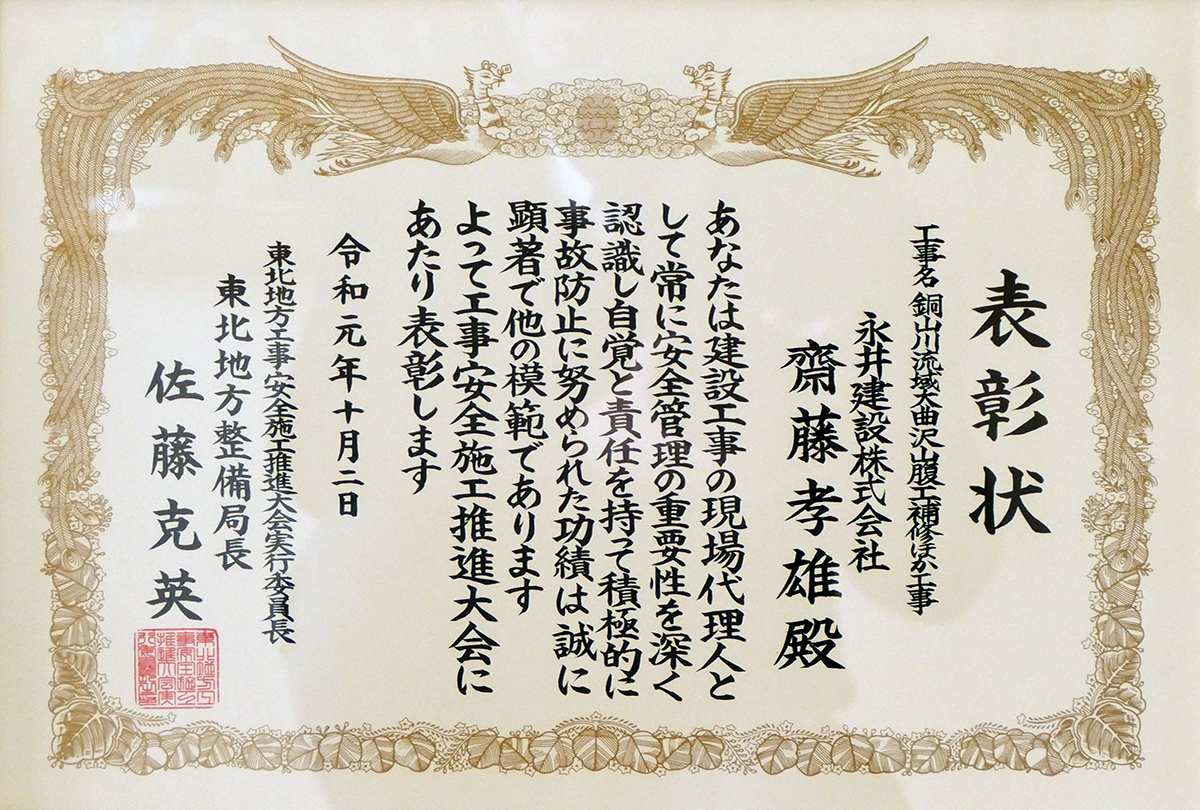 表彰状
工事名 銅山川流域大曲沢山腹工補修ほか工事
永井建設株式会社
齋藤孝雄殿
あなたは建設工事の現場代理人と
して常に安全管理の重要性を深く
認識し自覚と責任を持って積極的に
事故防止に努められた功績は誠に
顕著で他の模範であります
よって工事安全施工推進大会に
あたり表彰します
令和元年十月二日
東北地方工事安全施工推進大会実行委員長
東北地方整備局長
佐藤克英